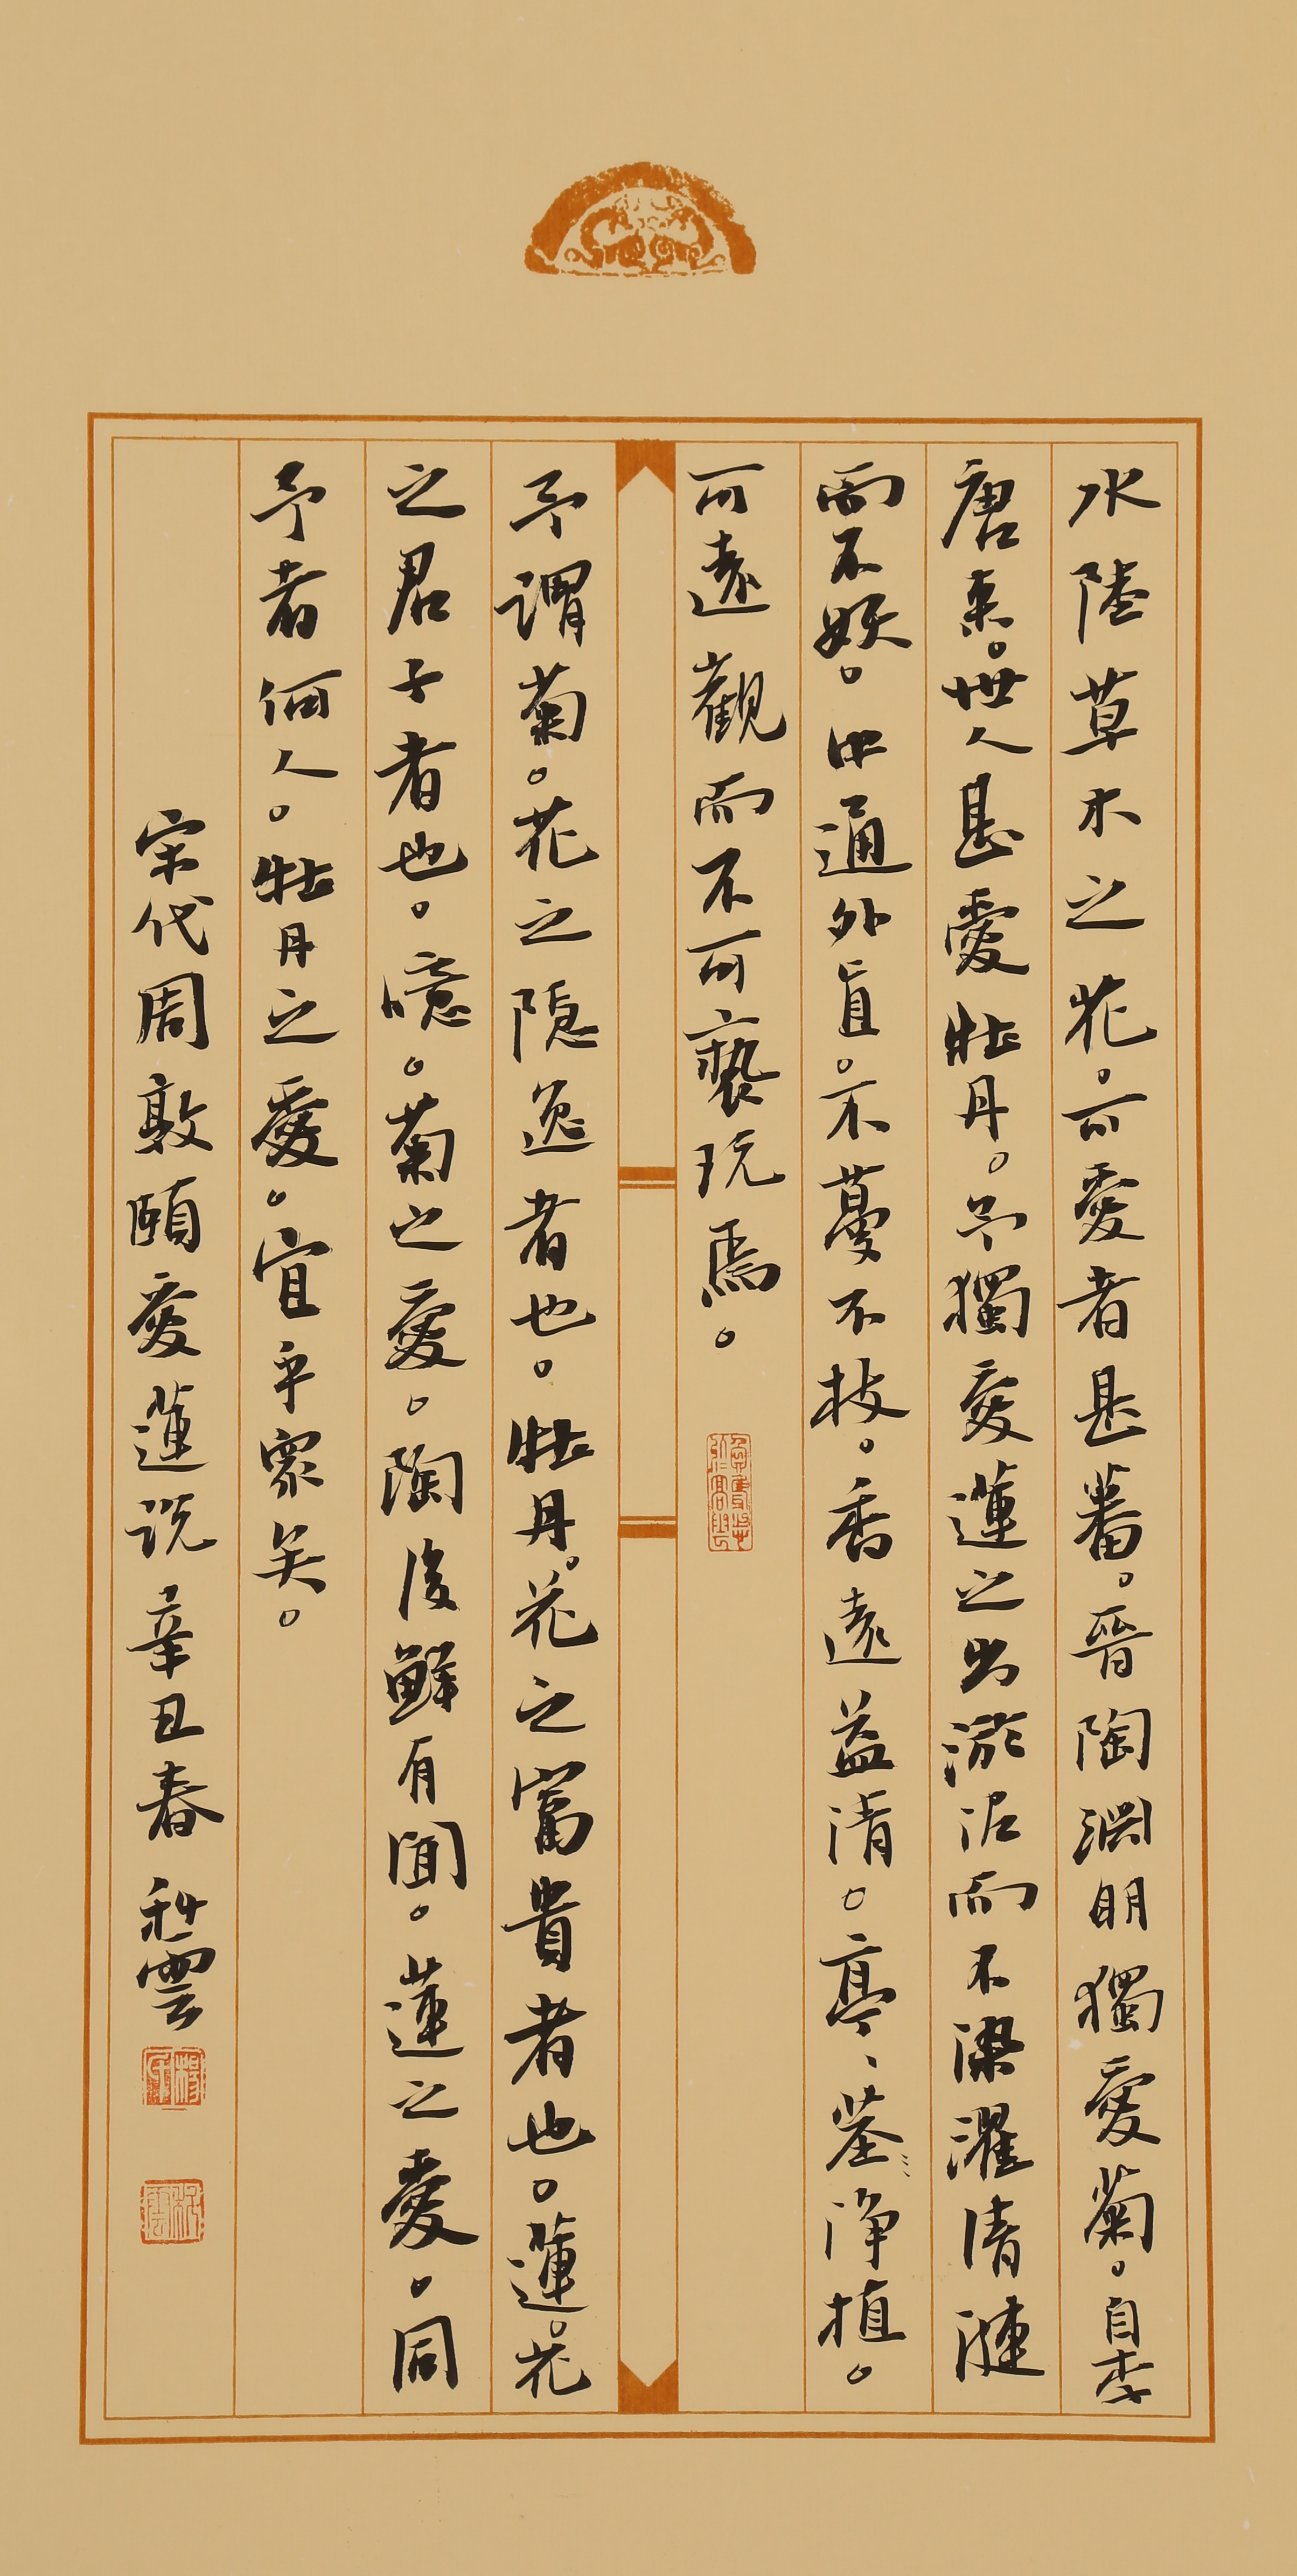 水陸草木之花。可愛者甚蕃。晉陶淵明獨愛菊。自李
唐来。世人甚愛牡丹。予獨愛蓮之出淤泥而不染濯清漣
而不妖。中通外直。不蔓不枝。香遠益清。亭、莖淨植。
可遠觀而不可褻玩焉。
予謂菊。花之隐逸者也。牡丹。花之富貴者也。蓮。花
之君子者也。噫。菊之愛。陶後鮮有聞。蓮之愛。同
予者何人。牡丹之愛。宜乎眾矣。
宋代周敦頤愛蓮説 辛丑春 雲